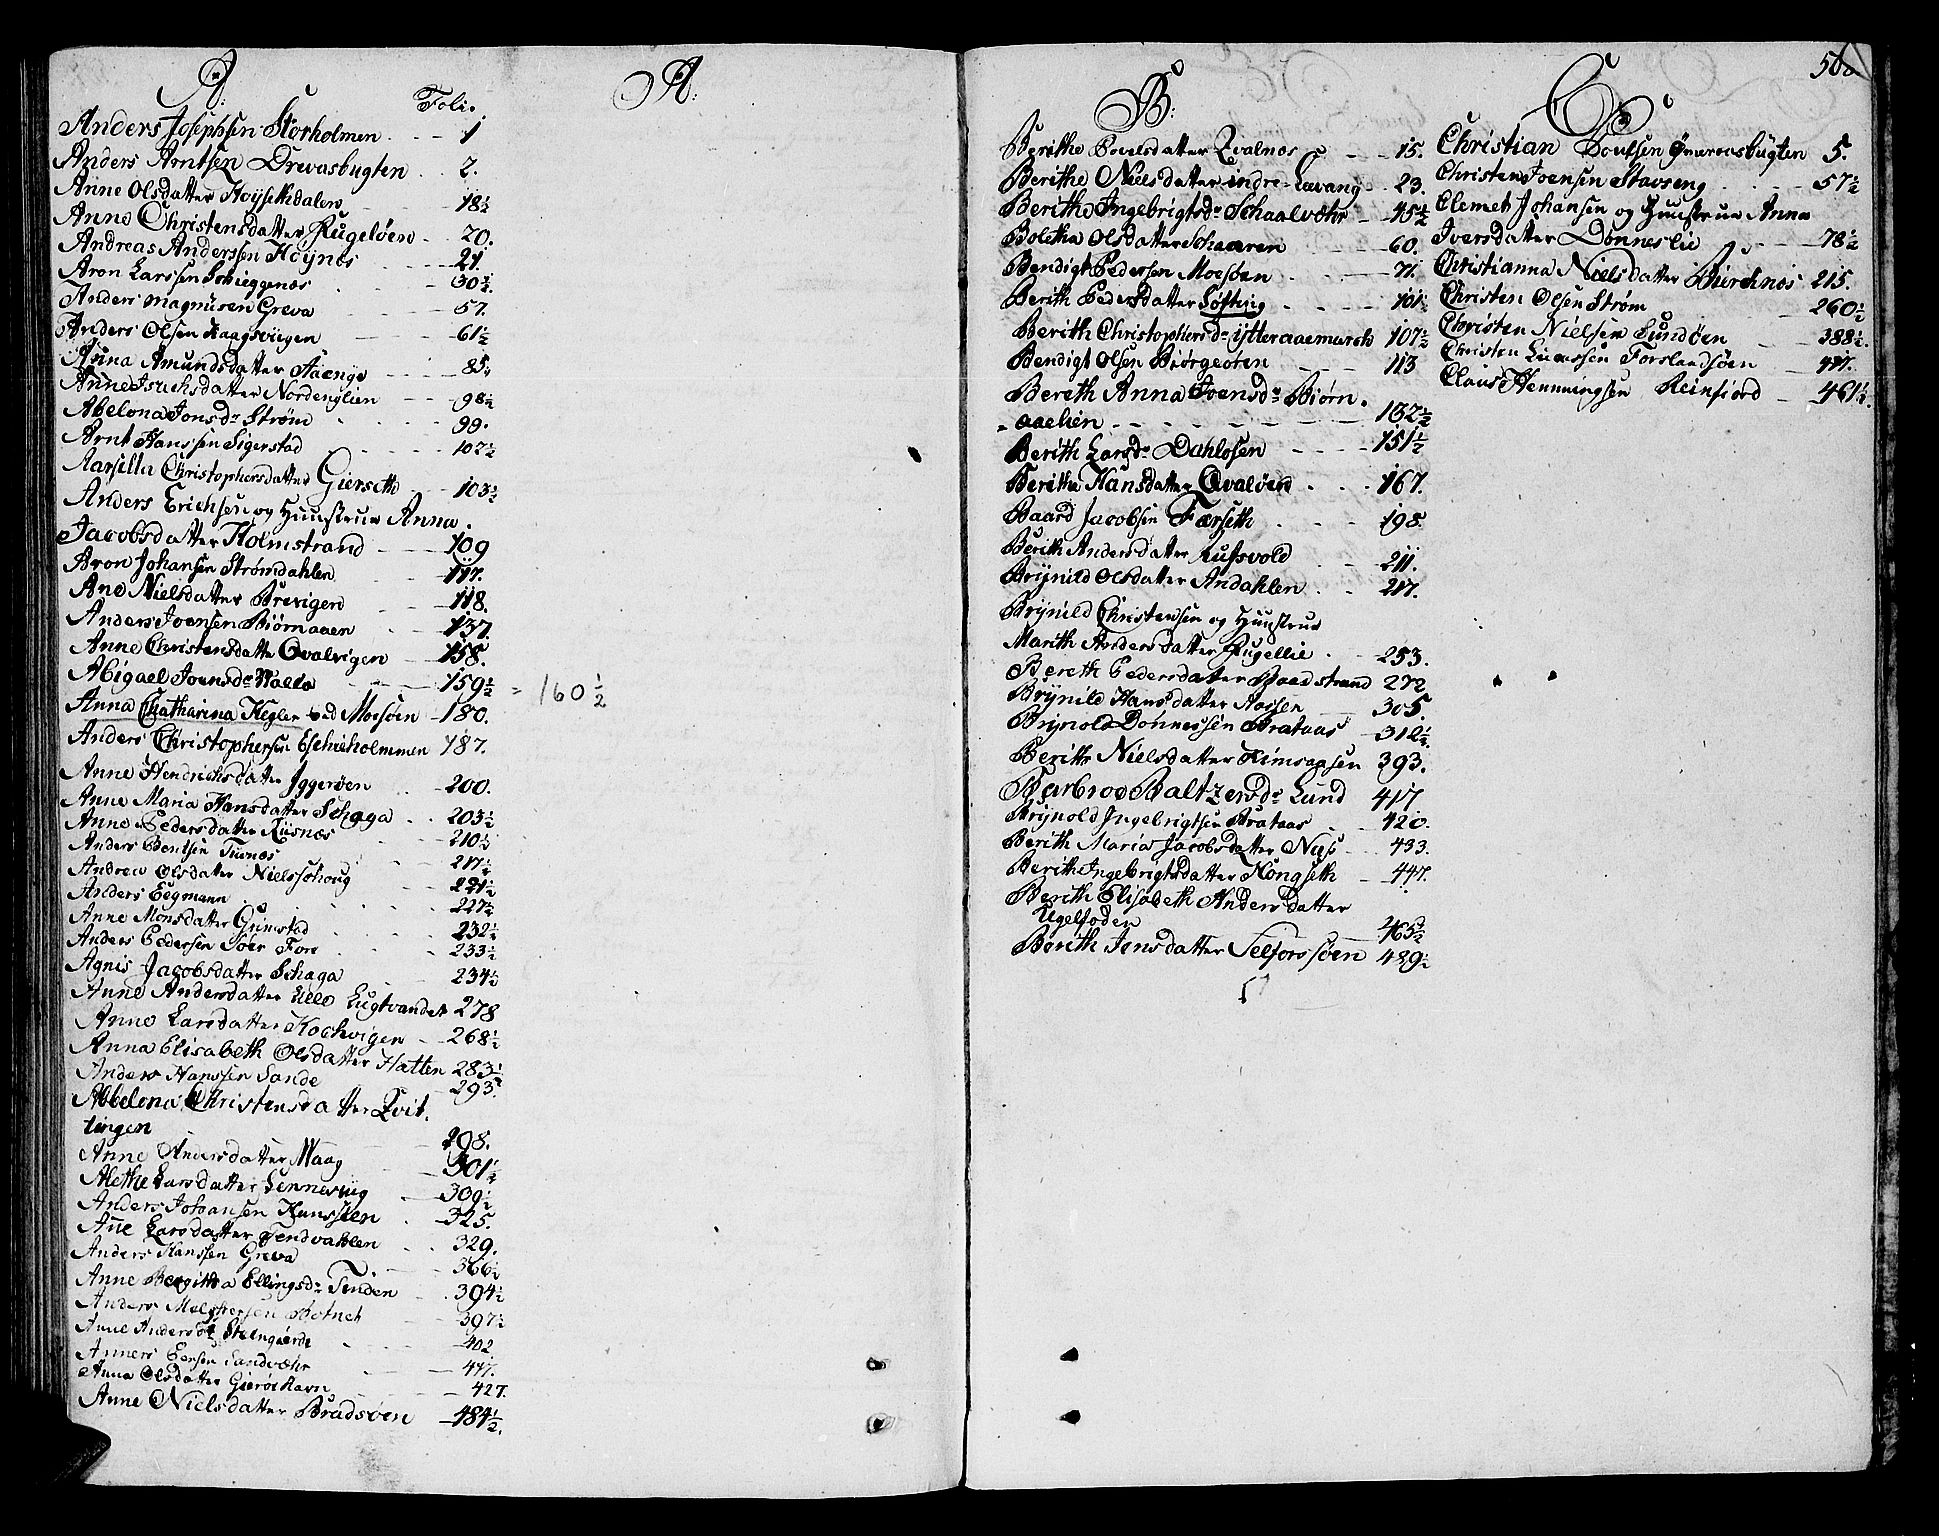 A:
Foli.
Anders Josephsen Storholmen 1
Anders Arntsen Drevasbugten 2.
Anne Olsdatter Høysethdalen 18½
Anne Christensdatter Rugeløen 20.
Andreas Anderssen Høynes 21.
Aron Larssen 30½.
Anders Magnusen Greva 57.
Anders Olsen Haagsviigen 61½
Anna Amundsdatter 85
Anne Isachsdatter Nordenglien 98½
Abelona Jonsdr Strøm 99.
Arnt Hanssen Sigerstad 102½
Marsilia Christophersdatter Gierseth 103½
Anders Erichsen og Huustrue Anna
Jacobsdatter Holmstrand 109
Aron Johansen Strømdahlen 117.
Ane Nielsdatter Brevigen 118.
Anders Joensen Biørnaaen 137.
Anne Christensdatter Qvalvigen 158.
Abigael Joensdr Valla 159½ = 160½
Anna Chatharina Kegler ved Mosøen 180.
Anders Christophersen Eschieholmmen 187.
Anne Hendrichsdatter Iggerøen 200.
Anne Maria Hansdatter Schaga 203½
Anne Pedersdatter Riisnæs 210½
Anders Bentsen Tiivnæs 217½
Andrea Olsdatter Nielsschoug 221½
Anders Eegmann 227½
Anne Monsdatter Grimstad 232½
Anders Pedersen Soer Fore 233½
Agnis Jacobsdatter Schaga 234½
Anne Andersdatter Lille Lugtvandet 278
Anne Larsdatter Kochvigen 268½
Anna Elisabeth Olsdatter Hatten 283½
Anders Hanssen Sande 293.
Abbelona Christensdatter Qvit-
tingen 298.
Anne Andersdatter Maag 301½
Alethe Larsdatter Lenneviig 309½
Anders Johansen Hansslien 325.
Ane Larsdatter Tendvahlen 329.
Anders Hanssen Greva 366½
Anne Bergitta Ellingsdr Tinden 394½
Anders Botnet 397½
Anne Andersdr 402
Anders Sandvæhr 447.
Anna Olsdatter Gierøe Havn 427.
Anne Nielsdatter Bradsøen 484½.
A:
B:
Berithe Povelsdatter Qvalnes 15.
Berithe Nielsdatter indre Levang 23.
Berithe Ingebrigtsdr Schaalvæhr 45½
Boletha Olsdatter Schaaren 60.
Bendigt Pedersen Mosøen 71.
Berith Pedersdatter Løfting 101½
Berith Christophersdr 107½
Bendigt Olsen Biørgeøren 113
Bereth Anna Joensdr Biørn-
aaelien 132½
Berith Larsdr Dahlosen 151½
Beritha Hansdatter Qvaløen 167.
Baard Jacobsen Færseth 198.
Berith Andersdatter Rufsvold 211.
Brynild Olsdatter Andahlen 217.
Brynild Christensen og Huustrue
Marith Andersdatter Rugellie 253.
Bereth Pedersdatter Baadstrand 272
Brynild Hansdatter Aassen 305.
Brynold Dønnessen Brataas 312½.
Berith Nielsdatter Kimsaasen 393.
Barbroe Baltzersdr Lund 417
Brynold Ingebrigtsen Brataas 420.
Berith Maria Jacobsdatter Næs 433.
Berith Ingebrigtsdatter Kongseth 447.
Berith Elisabeth Andersdatter
Ugelfoden 465½
Berith Jensdatter Selforssøen 489½
500.
C
Christian Poulsen 5.
Christen Joensen Stavseng 57½
Clemet Johansen og Huustrue Anna
Iversdatter Dønneslie 78½
Christianna Nielsdatter Bierchnes 215.
Christen Olsen Strøm 260½
Christen Nielsen Sundøen 388½.
Christen Forslandsøen 447.
Claus Henningsen Reinfiord 461½.